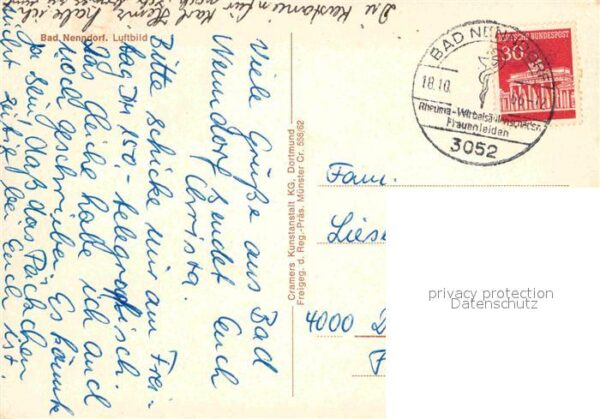 Die Kastanien für
Karl Heinz habe ich
Bad Nenndorf. Luftbild
Viele Grüße aus Bad
Nenndorf sendet Euch
Christa.
Bitte schicke mir am Frei-
tag DM 150,- telegrafisch.
Das gleiche habe ich auch
Vod geschrieben. Es könnte
ja sein, daß das Päckchen
nicht zeitig bei Euch ist.
Cramers Kunstanstalt KG, Dortmund
Freigeg. d. Reg.-Präs. Münster Cr. 536/62
BAD NENNDORF
18.10.
Rheuma-Wirbelsäulenschäden
Frauenleiden
3052
30
DEUTSCHE BUNDESPOST
Fam.
Liese
4000 D
F
privacy protection
Datenschutz